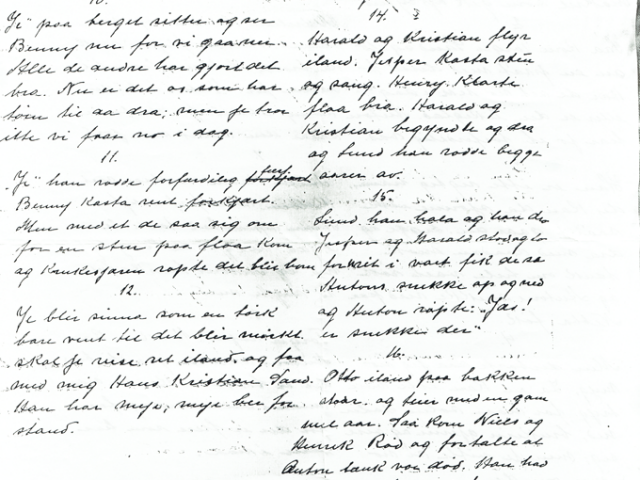 "Je" paa berget sitter og ser
Benny nu for vi gaa ner
Alle de andre har gjort det
bra. Nu er det os som har
til aa dra; men je tror
itte vi faar no i dag.
11.
"Je" han rodde forfærdileg
Benny kasta rent forkjært.
Men med et de saa sig om
for en stor paa floa kom
og ropte det blir bom
12.
Je blir sinna som en tørk
bare vent til det blir mørkt
skal je vise ret iland. og faa
med mig Hans Kristian Sand.
Han har mye, mye bær for
stand.
14. ?
Harald og Kristian flyr
iland. Jesper kasta sten
og sang. Henry klarte
floa bra. Harald og
Kristian begyndte og dra
og Lund han rodde begge
aarer av.
15.
Lund han og han dro
Jesper og Harald stod og lo
for krit i vort fik de saa
Antons snekke op og ned
og Anton ropte: "Jas!
er snekke der"
16.
Otto iland paa bakken
staar. og seier med en gam
mel aar. Saa kom Niels og
Henrik Rød og fortalte at
Anton var død. Han had